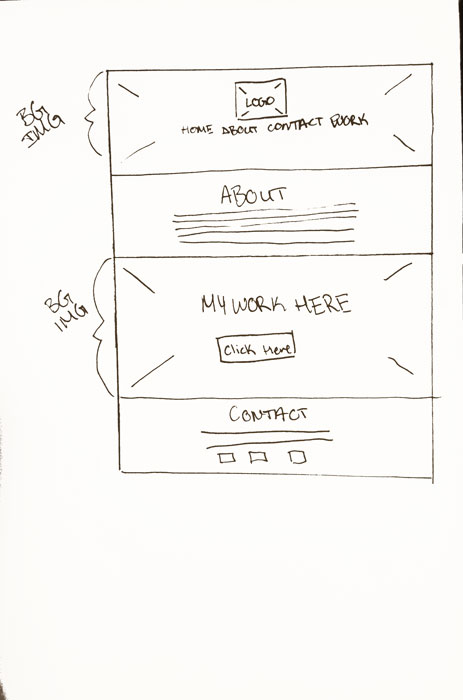 BG
IMG
LOGO
HOME ABOUT CONTACT WORK
ABOUT
BG
IMG
MY WORK HERE
Click Here
CONTACT